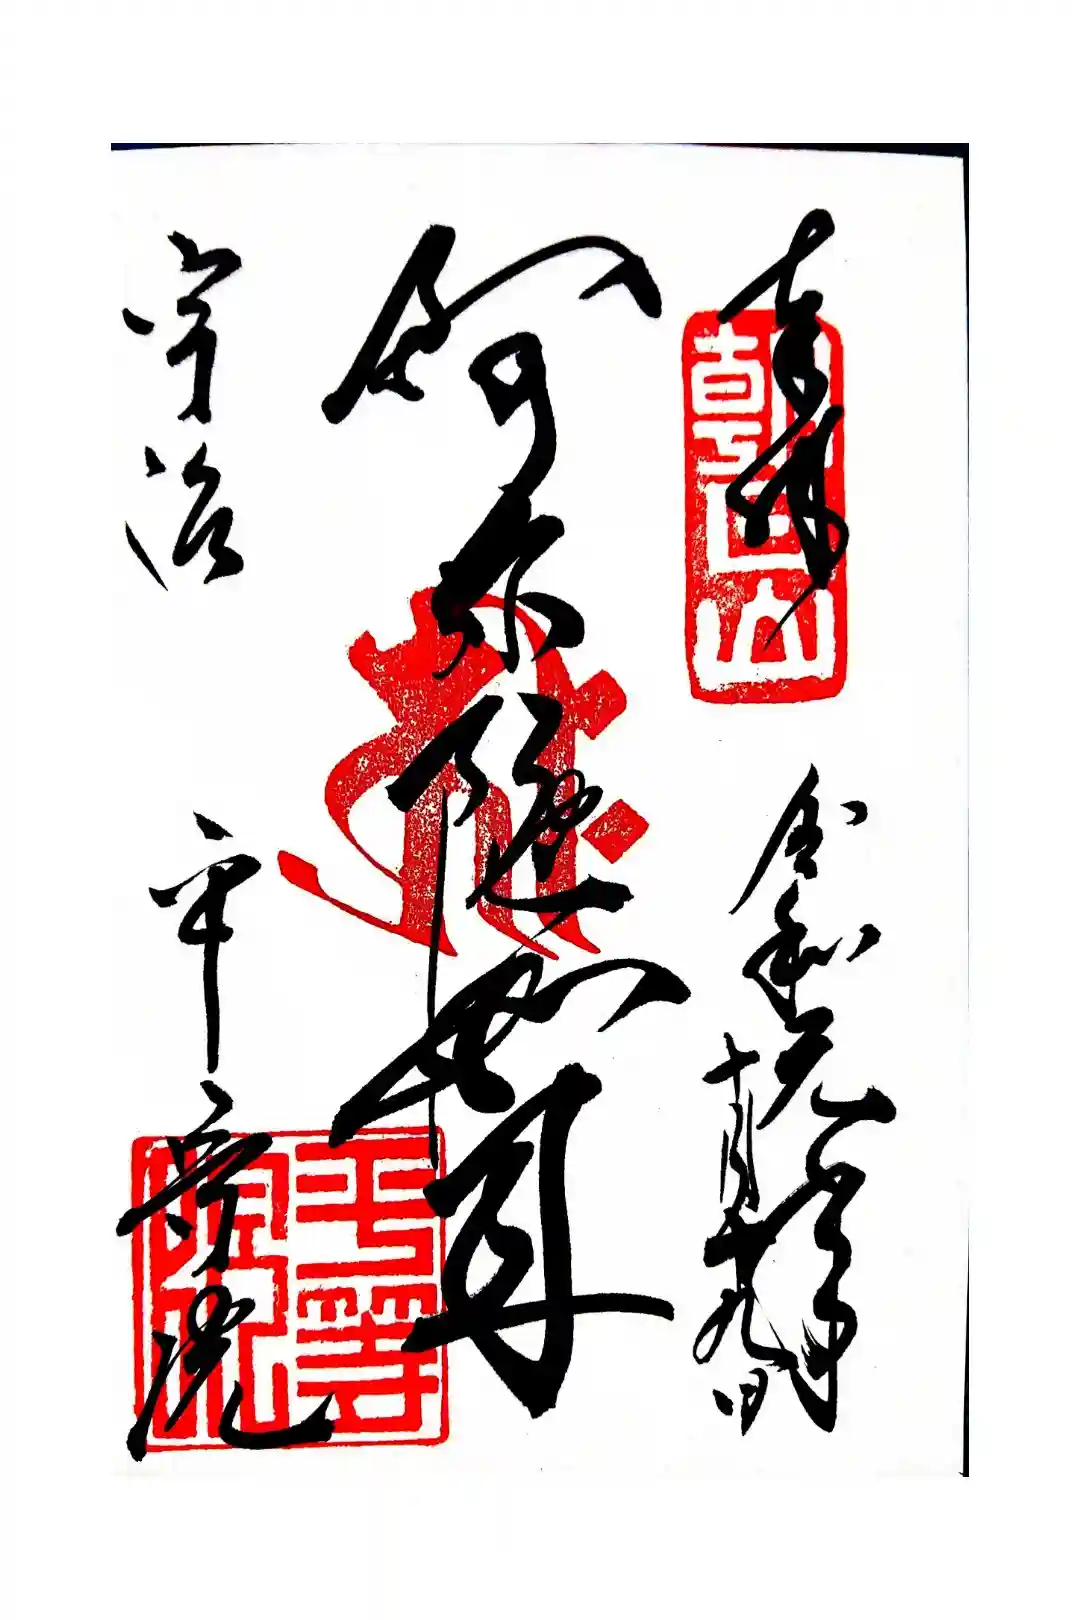 奉拝
朝日山
令和元年
十月十九日
阿弥陀如来
宇治 平等院
平等院